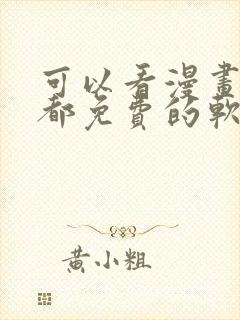 可以看漫畫
都免費的軟
黃小粗